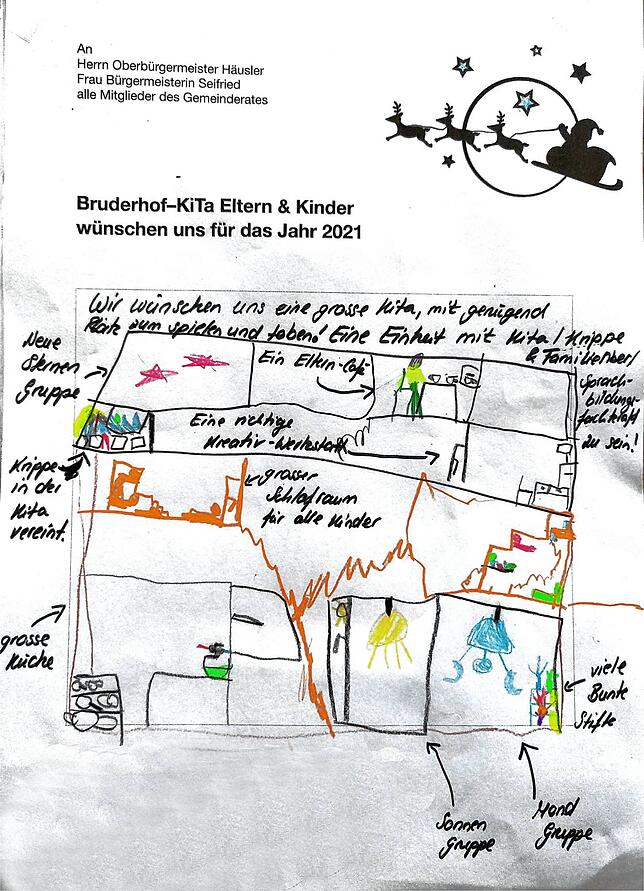 An
Herrn Oberbürgermeister Häusler
Frau Bürgermeisterin Seifried
alle Mitglieder des Gemeinderates
Bruderhof–KiTa Eltern & Kinder
wünschen uns für das Jahr 2021
Wir wünschen uns eine grosse Kita, mit genügend
Platz zum spielen und toben! Eine Einheit mit Kita / Krippe
& Familienber/
Sprach-
bildungs-
fachkraft
zu sein!
Neue
Sternen
Gruppe
Ein Eltern-Café
Eine richtige
Kreativ-Werkstatt
Krippe
in der
Kita
vereint.
grosser
Schlafraum
für alle Kinder
grosse
Küche
viele
Bunte
Stifte
Sonnen
Gruppe
Mond
Gruppe